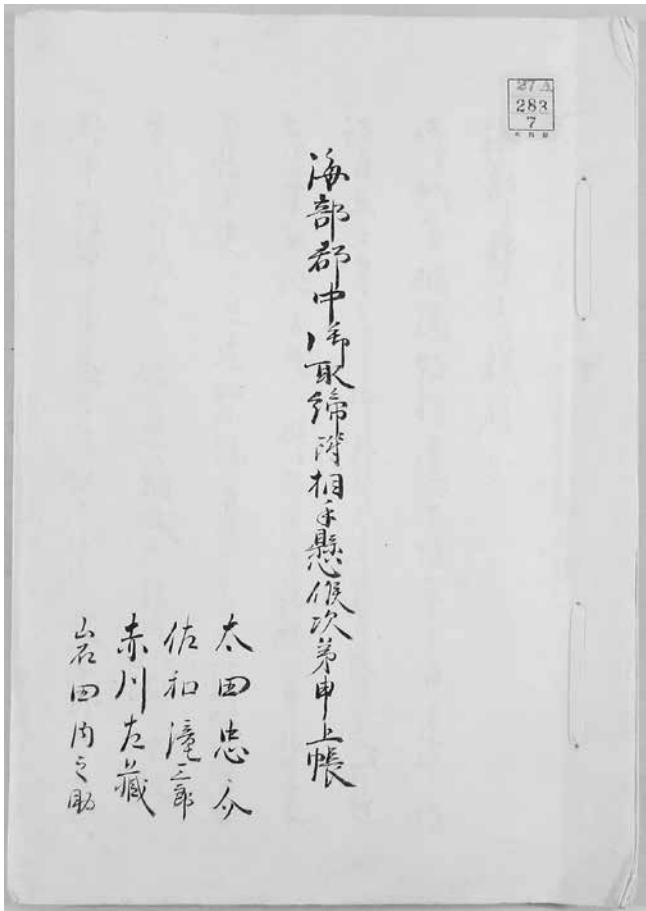 27 A
283
7
海部郡中御取締附相手懸候次第申上帳
太田忠介
佐和滝三郎
赤川左蔵
岩田内之助